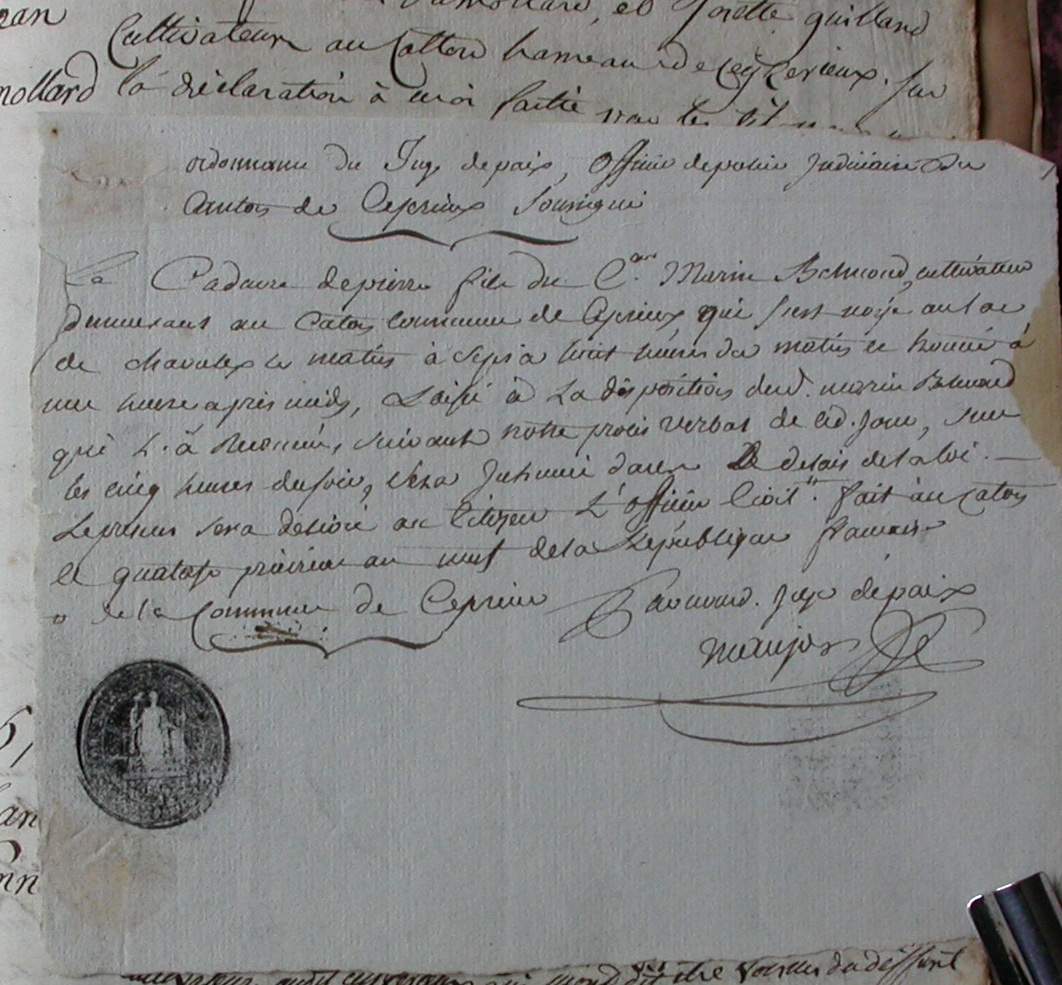 nan
Damollard, et Josette guilland
Cultivateur au Catton hameau de Ceyzerieux. sur
mollard la déclaration à moi faitte par les
ordonnance du Juge depaix, Officier depolice Judiciaire du
Canton de Ceyzerieux Soussigné
Le Cadavre depierre fils du C.en Marin Belmond, cultivateur
demeurant au Caton Commune de Ceyzrieux qui s'est noyé au lac
de ce matin à Sept à huit heures du matin et trouvé à
une heure après midy, Laissé à La disposition dud. marin Belmond
qui L'a Reconnu, suivant notre procès verbal de cd. Jour, sur
les cinq heures du soir, sera Juhumé dans Le delais de la loi. —
Le présent sera délivré au Citoyen L'officier Civil. fait au Caton
le quatorze prairial an neuf de la République francaise
de la Commune de Ceyzrieu juge depaix
den
un
être Voisin du deffunt